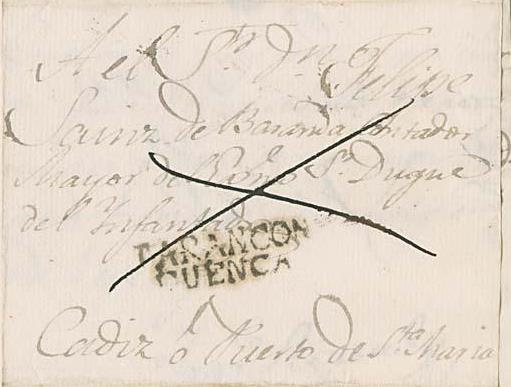 A el Sr. Dn. Felipe
Sainz de Baranda Contador
Mayor del Exmo. Sr. Duque
del Infantado
TARANCON
CUENCA
Cadiz ó Puerto de Sta. Maria